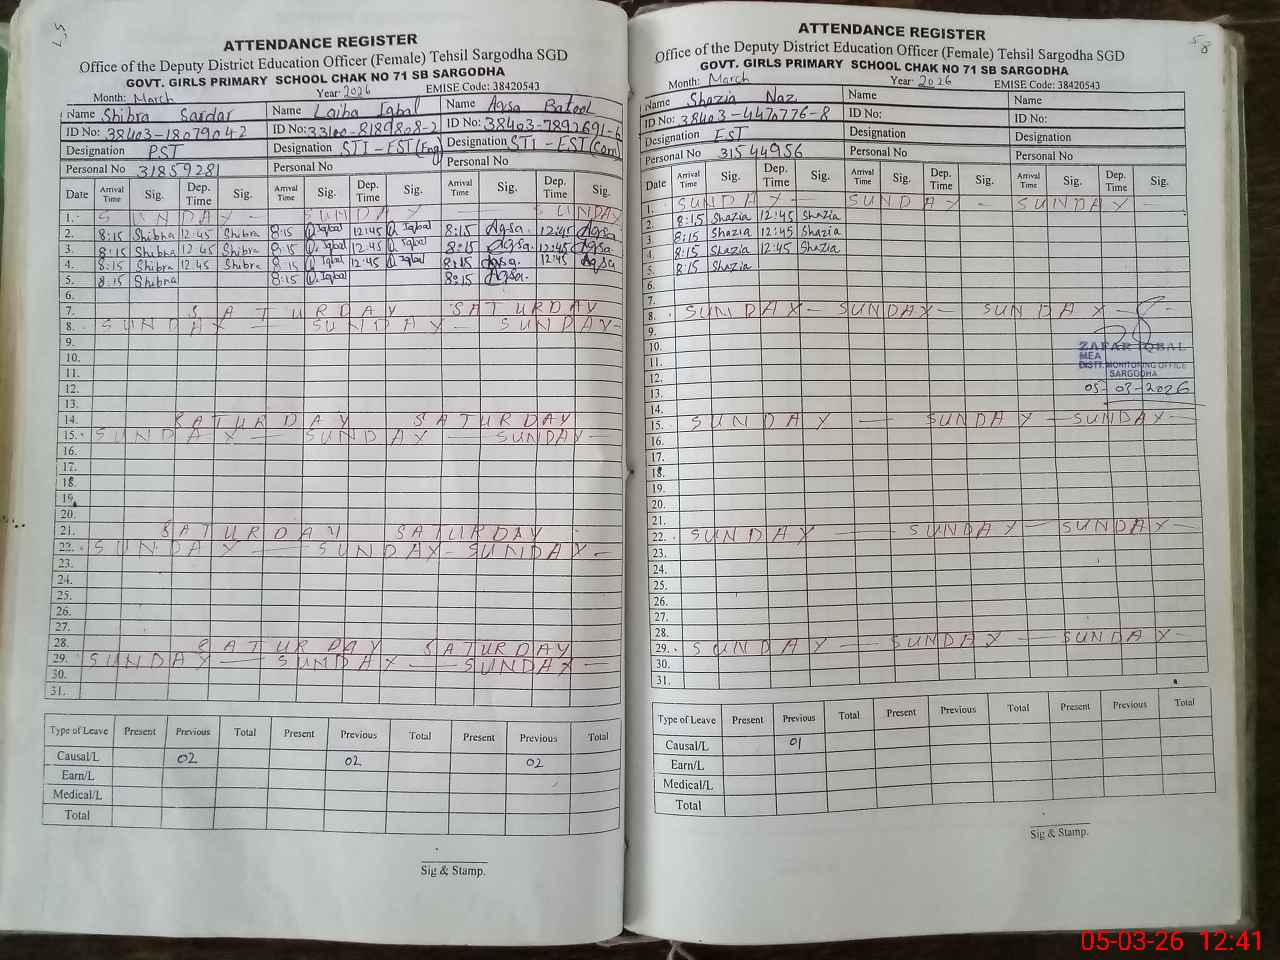 ATTENDANCE REGISTER
Office of the Deputy District Education Officer (Female) Tehsil Sargodha SGD
GOVT. GIRLS PRIMARY SCHOOL CHAK NO 71 SB SARGODHA
Month: March Year 2026 EMISE Code: 38420543
Name Shibra Sardar Name Laiba Iqbal Name Aqsa Batool
ID No: 38403-18079042 ID No: 33100-8189808-2 ID No: 38403-7892691-6
Designation PST Designation STI-EST(Eng) Designation STI-EST(Com)
Personal No 31859281 Personal No Personal No
Date Arrival Time Sig. Dep. Time Sig. Arrival Time Sig. Dep. Time Sig. Arrival Time Sig. Dep. Time Sig.
1. SUNDAY SUNDAY SUNDAY
2. 8:15 Shibra 12:45 Shibra 8:15 Iqbal 12:45 Iqbal 8:15 Aqsa 12:45 Aqsa
3. 8:15 Shibra 12:45 Shibra 8:15 Iqbal 12:45 Iqbal 8:15 Aqsa. 12:45 Aqsa.
4. 8:15 Shibra 12:45 Shibra 8:15 Iqbal 12:45 Iqbal 8:15 Aqsa. 12:45 Aqsa
5. 8:15 Shibra 8:15 Iqbal 8:15 Aqsa.
6.
7. SATURDAY SATURDAY
8. SUNDAY SUNDAY SUNDAY
9.
10.
11.
12.
13.
14. SATURDAY SATURDAY
15. SUNDAY SUNDAY SUNDAY
16.
17.
18.
19.
20.
21. SATURDAY SATURDAY
22. SUNDAY SUNDAY SUNDAY
23.
24.
25.
26.
27.
28. SATURDAY SATURDAY
29. SUNDAY SUNDAY SUNDAY
30.
31.
Type of Leave Present Previous Total Present Previous Total Present Previous Total
Causal/L 02 02 02
Earn/L
Medical/L
Total
Sig & Stamp.
58
ATTENDANCE REGISTER
Office of the Deputy District Education Officer (Female) Tehsil Sargodha SGD
GOVT. GIRLS PRIMARY SCHOOL CHAK NO 71 SB SARGODHA
Month: March Year 2026 EMISE Code: 38420543
Name Shazia Naz Name Name
ID No: 38403-4470776-8 ID No: ID No:
Designation EST Designation Designation
Personal No 31544956 Personal No Personal No
Date Arrival Time Sig. Dep. Time Sig. Arrival Time Sig. Dep. Time Sig. Arrival Time Sig. Dep. Time Sig.
1. SUNDAY SUNDAY SUNDAY
2. 8:15 Shazia 12:45 Shazia
3 8:15 Shazia 12:45 Shazia
4. 8:15 Shazia 12:45 Shazia
5. 8:15 Shazia
6.
7.
8. SUNDAY SUNDAY SUNDAY
9.
10.
11.
12.
13.
14.
ZAFAR IQBAL
MEA
DISTT. MONITORING OFFICE
SARGODHA
05-03-2026
15. SUNDAY SUNDAY SUNDAY
16.
17.
18.
19.
20.
21.
22. SUNDAY SUNDAY SUNDAY
23.
24.
25.
26.
27.
28.
29. SUNDAY SUNDAY SUNDAY
30.
31.
Type of Leave Present Previous Total Present Previous Total Present Previous Total
Causal/L 01
Earn/L
Medical/L
Total
Sig & Stamp.
05-03-26 12:41